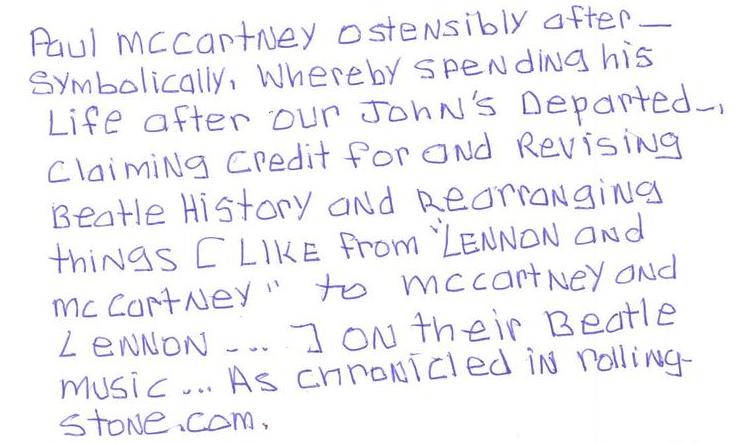 Paul McCartney ostensibly after—
Symbolically, Whereby spending his
Life after our John's Departed—,
Claiming Credit for and Revising
Beatle History and Rearranging
things [ LIKE from "LENNON and
McCartney" to McCartney and
LENNON ... ] ON their Beatle
music ... As chronicled in rolling-
stone.com.